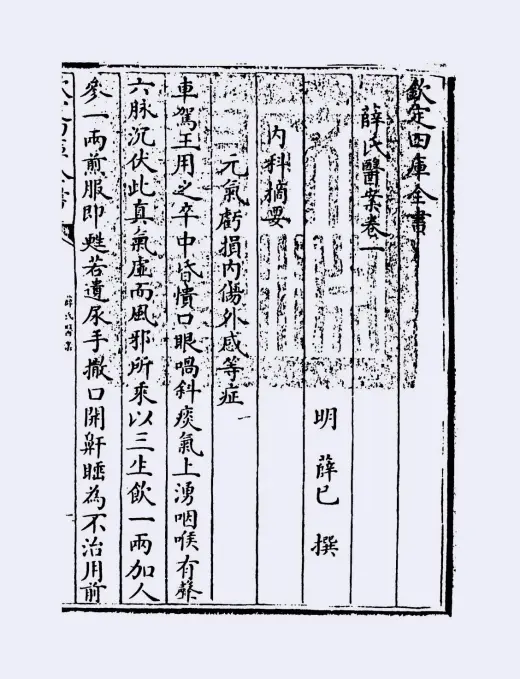 欽定四庫全書
薛氏醫案卷一
明 薛已 撰
内科摘要
元氣虧損内傷外感等症一
車駕王用之卒中昏憒口眼喎斜痰氣上湧咽喉有聲
六脉沉伏此真氣虚而風邪所乘以三生飲一兩加人
參一兩煎服即甦若遺尿手撒口開鼾睡為不治用前
薛氏醫案